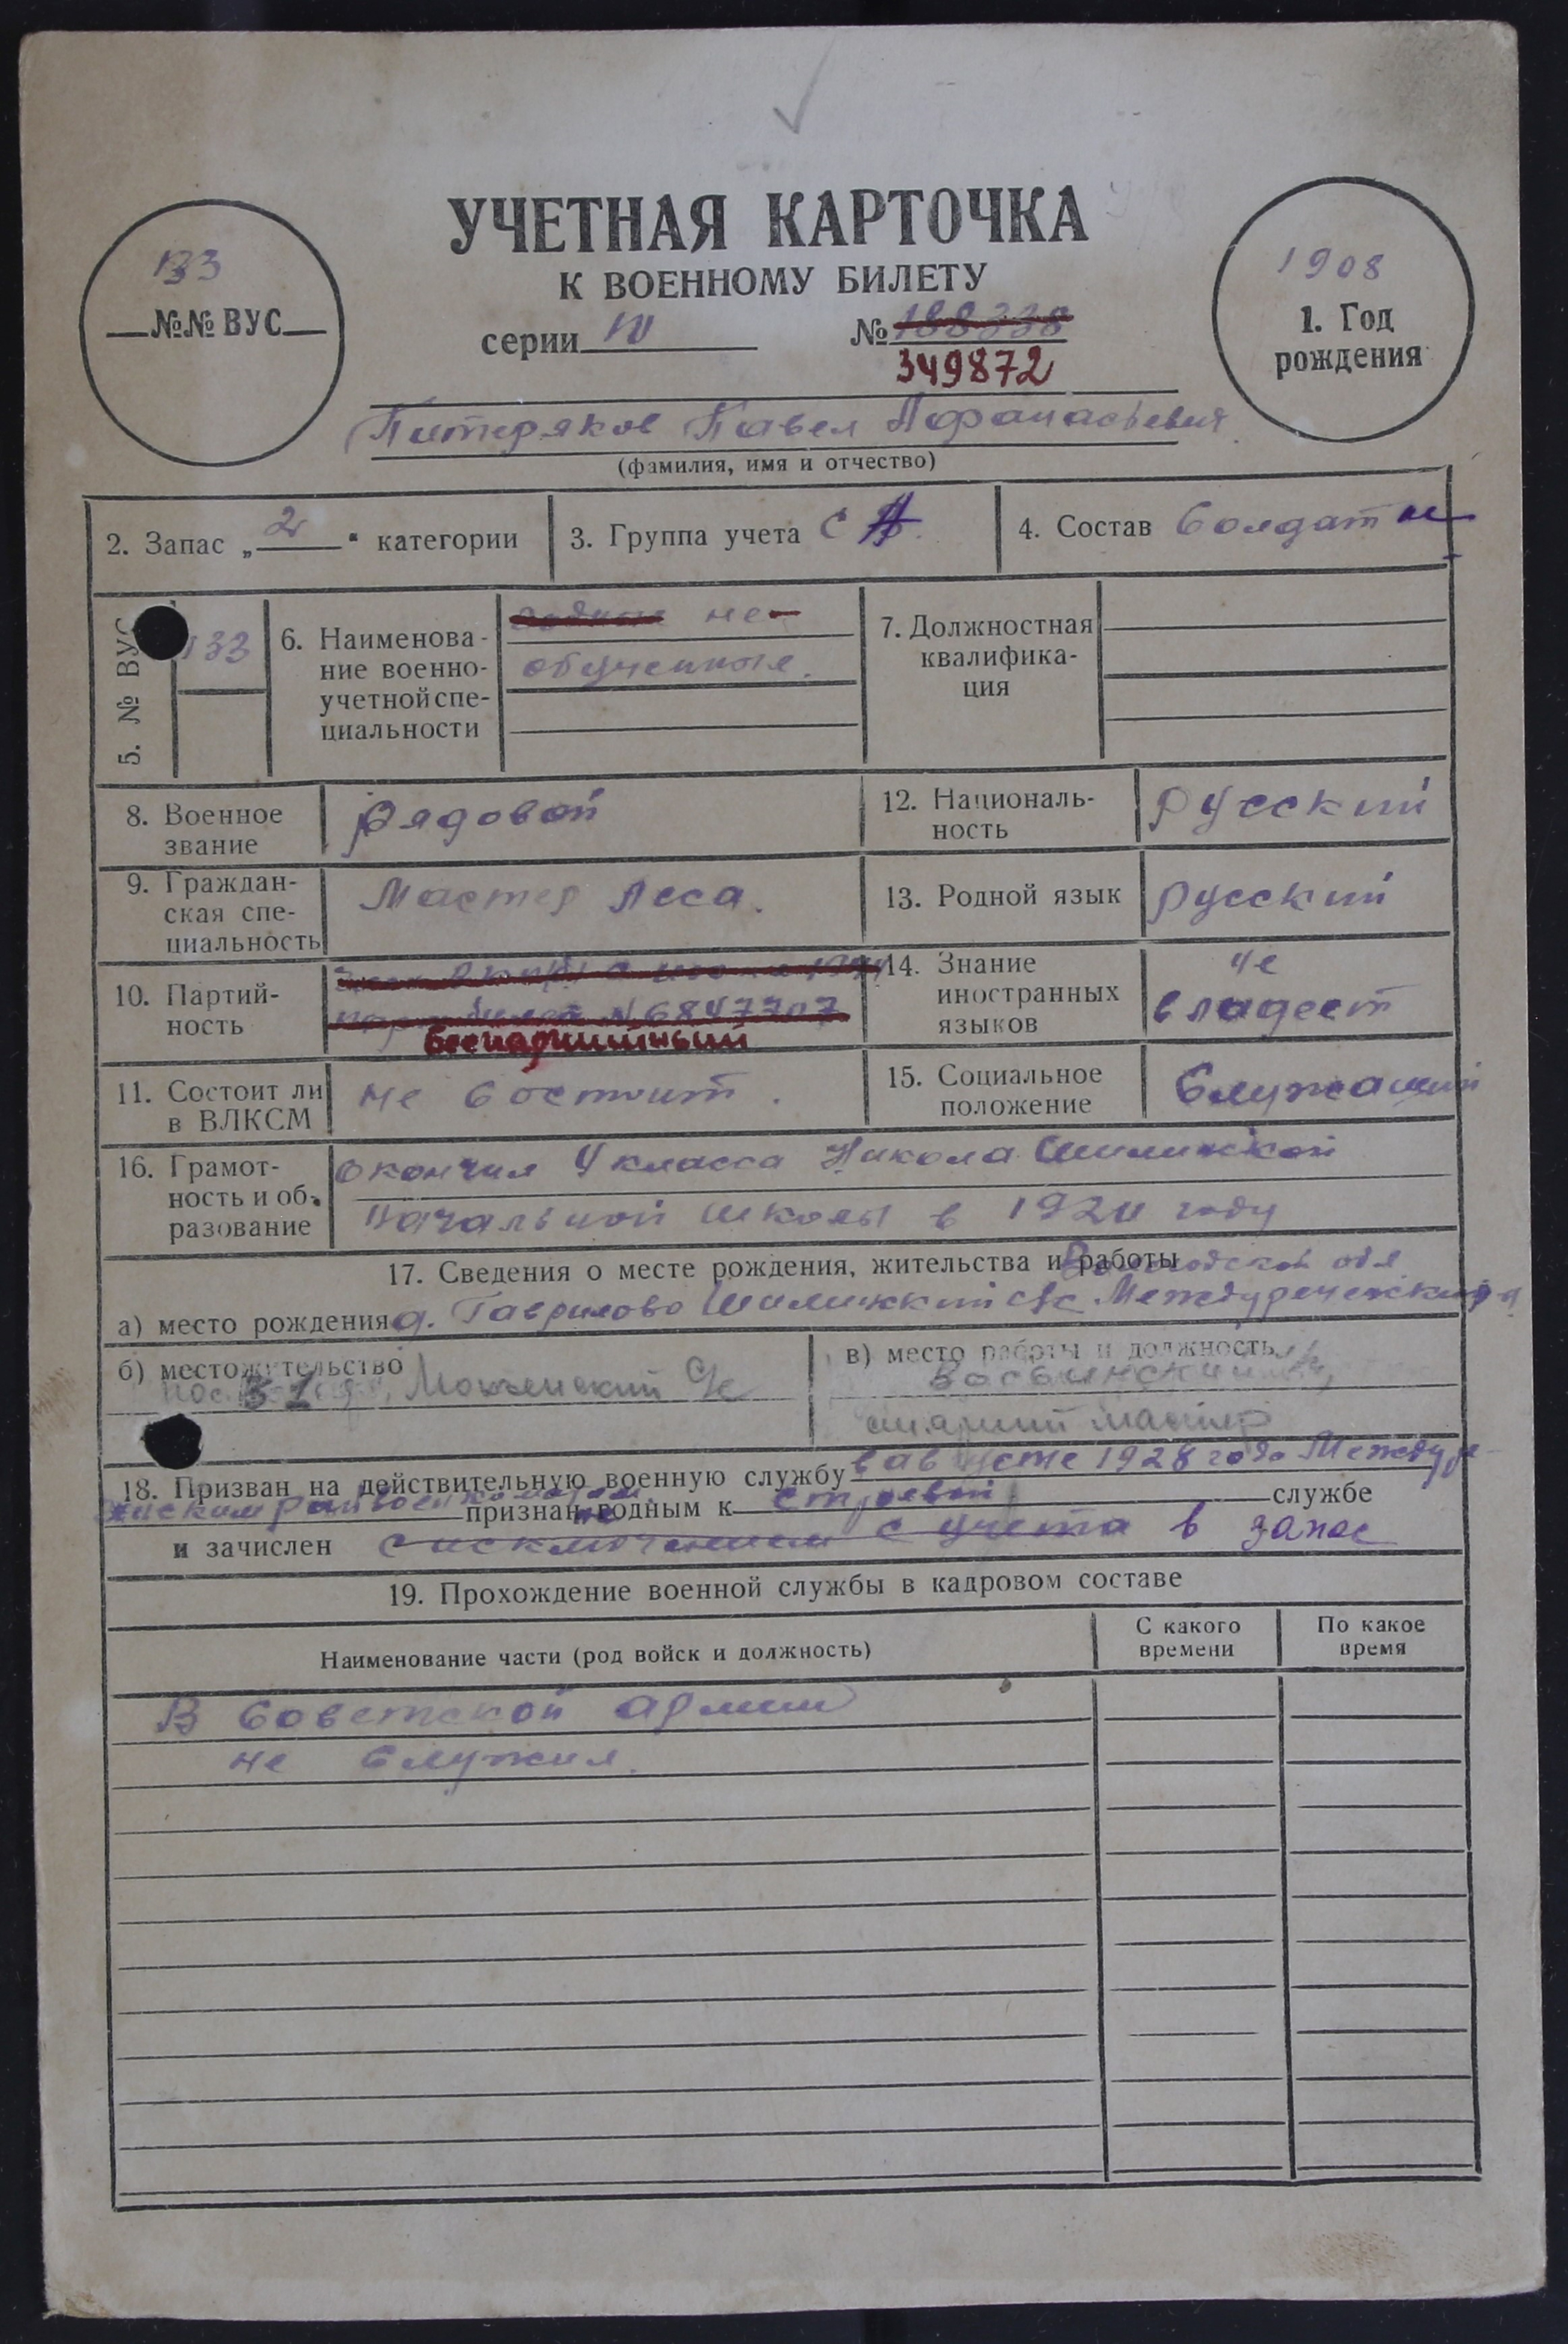 УЧЕТНАЯ КАРТОЧКА
К ВОЕННОМУ БИЛЕТУ
133
№№ ВУС
серии IV № 188338
349872
1908
1. Год рождения
Питеряков Павел Афанасьевич
(фамилия, имя и отчество)
2. Запас „2“ категории
3. Группа учета СА
4. Состав Солдат
5. № ВУС 133
6. Наименова-
ние военно-
учетной спе-
циальности
не
обученные.
7. Должностная
квалифика-
ция
8. Военное
звание
Рядовой
12. Националь-
ность
Русский
9. Граждан-
ская спе-
циальность
Мастер леса.
13. Родной язык Русский
10. Партий-
ность
№ 6847707
беспартийный
14. Знание
иностранных
языков
не
владеет
11. Состоит ли
в ВЛКСМ
не состоит.
15. Социальное
положение
Служащий
16. Грамот-
ность и об-
разование
окончил 4 класса Никола
начальной школы в году
17. Сведения о месте рождения, жительства и работы
Вологодской обл
а) место рождения д. Гаврилово с/с Междуреченский
б) местожительство
с/с
в) место работы и должность
старший мастер
18. Призван на действительную военную службу в августе 1928 года
признан не годным к строевой службе
и зачислен с исключением с учета в запас
19. Прохождение военной службы в кадровом составе
Наименование части (род войск и должность)
С какого
времени
По какое
время
В Советской армии
не служил.